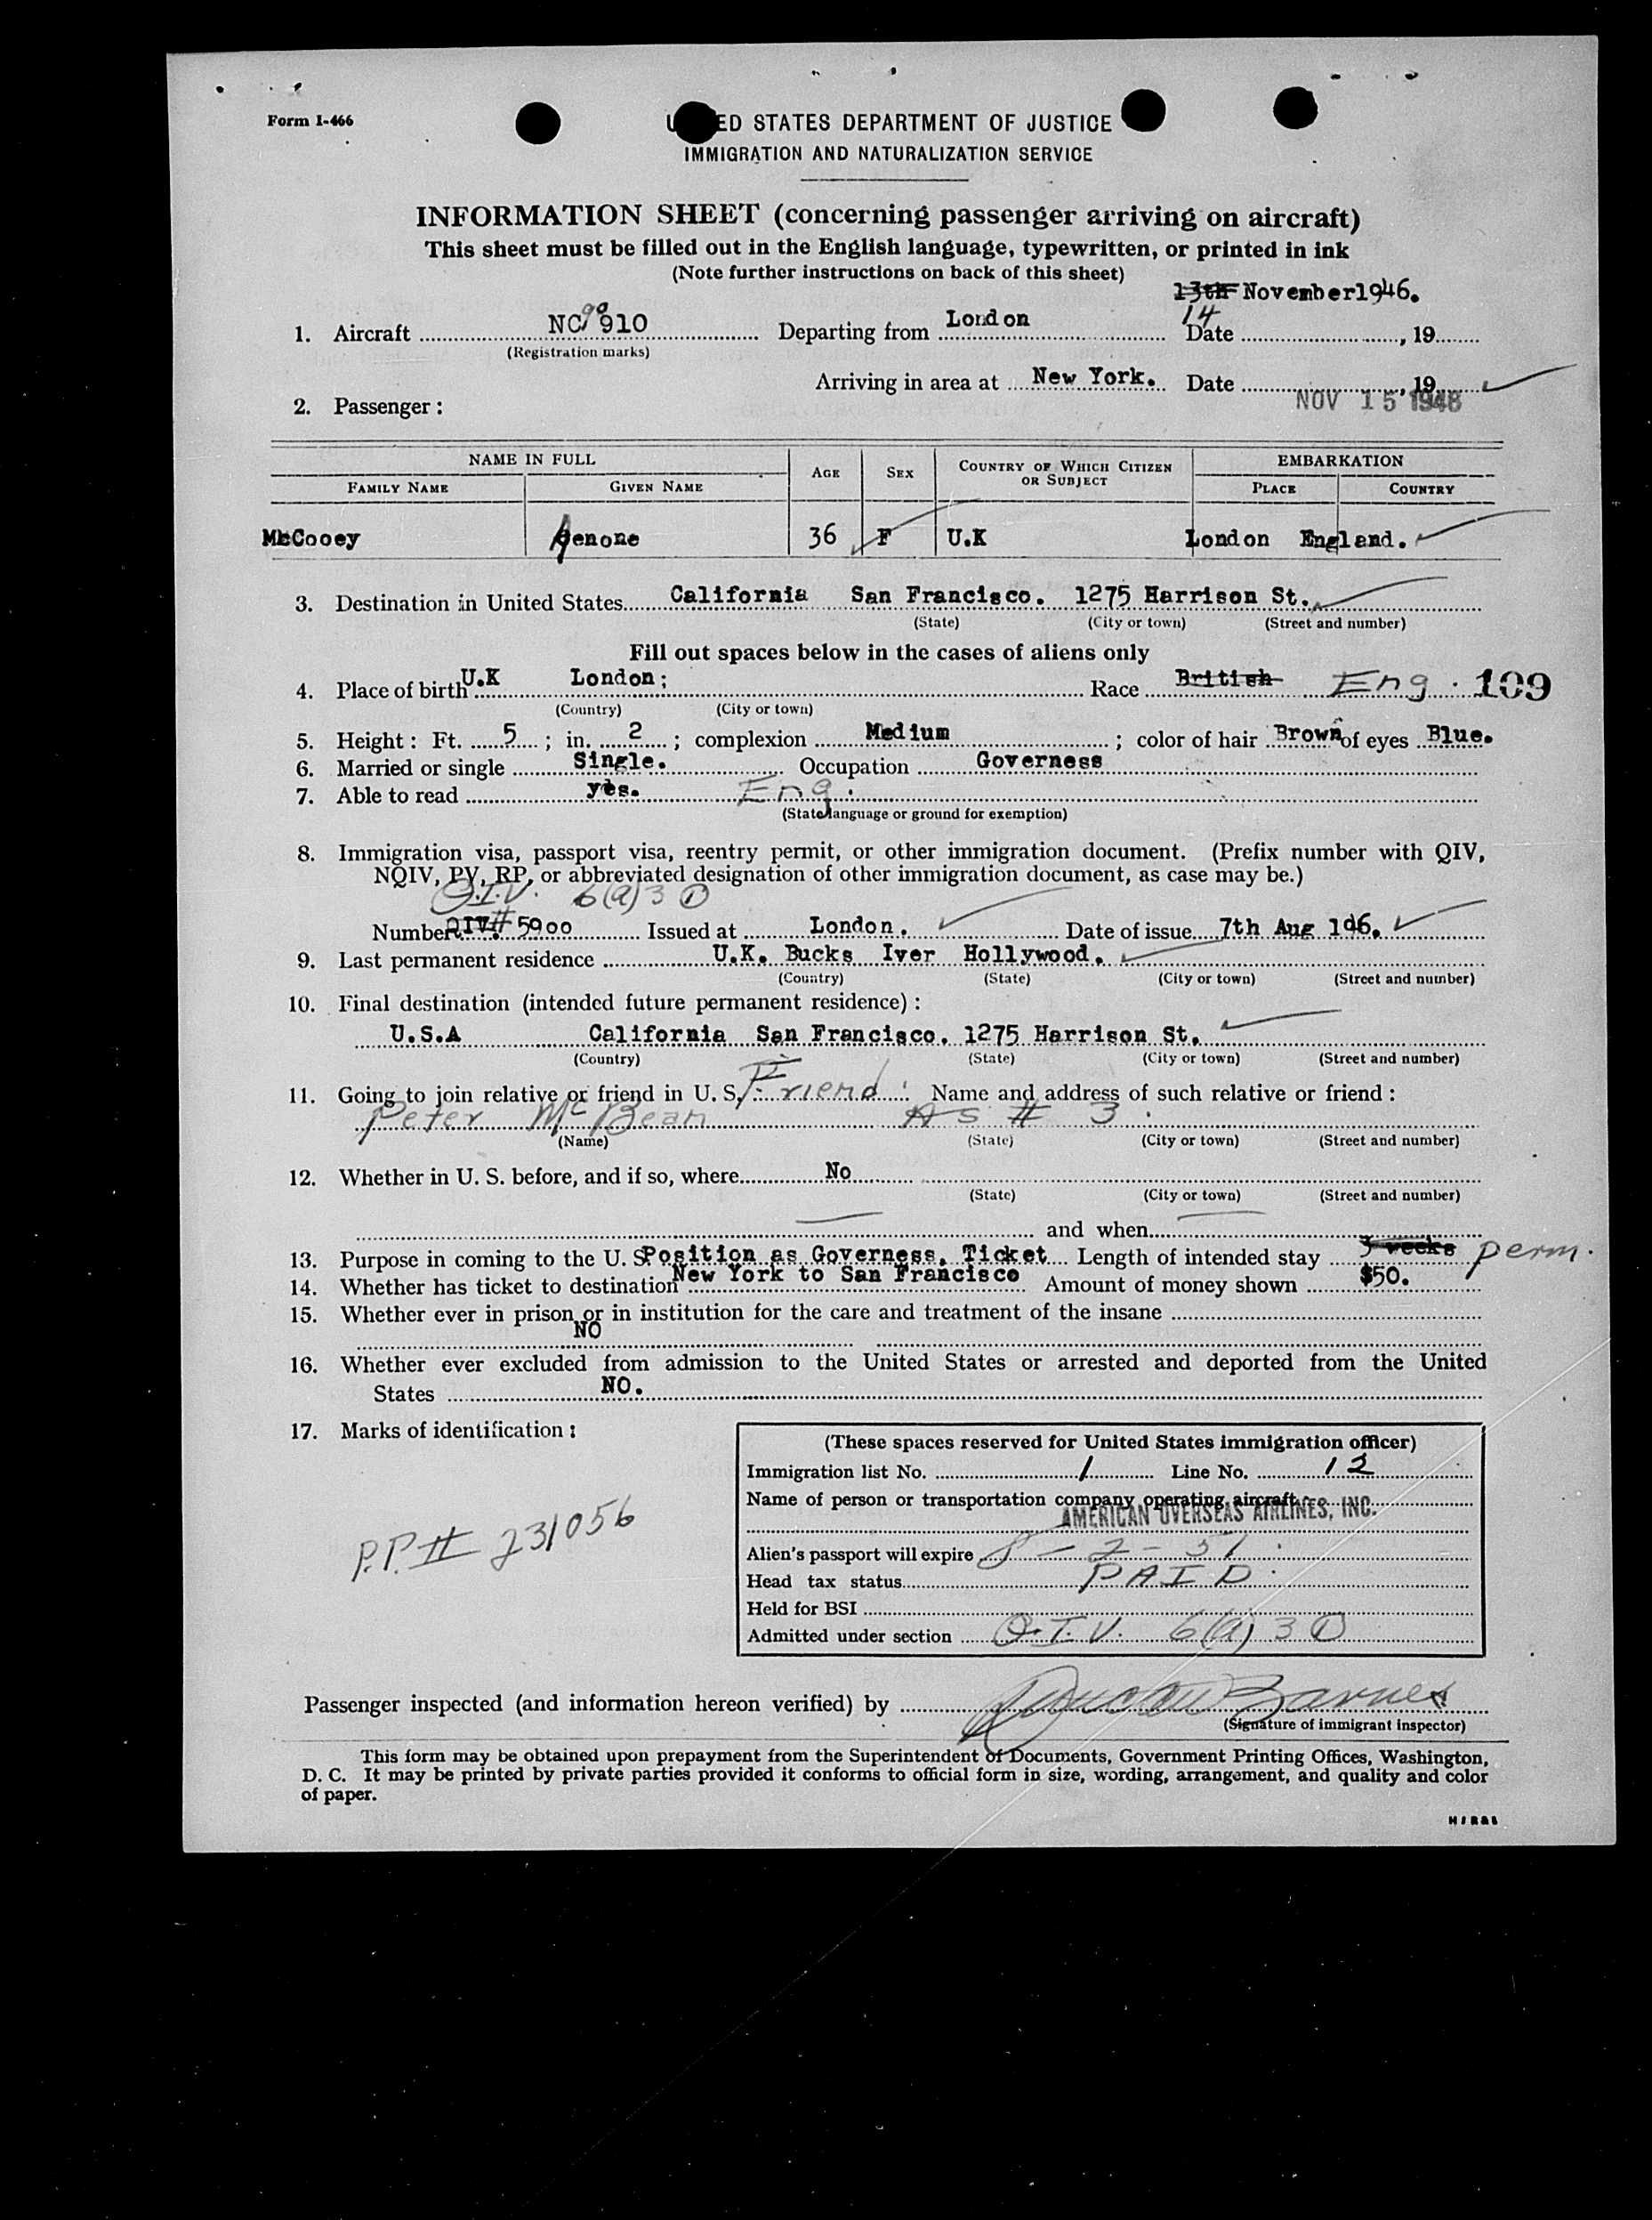 Form I-466
UNITED STATES DEPARTMENT OF JUSTICE
IMMIGRATION AND NATURALIZATION SERVICE
INFORMATION SHEET (concerning passenger arriving on aircraft)
This sheet must be filled out in the English language, typewritten, or printed in ink
(Note further instructions on back of this sheet)
13th November1946.
1. Aircraft NC 90910 Departing from London 14 Date , 19
(Registration marks)
Arriving in area at New York. Date , 19
NOV 15 1946
2. Passenger:
NAME IN FULL AGE SEX COUNTRY OF WHICH CITIZEN OR SUBJECT EMBARKATION
FAMILY NAME GIVEN NAME PLACE COUNTRY
McCooey enone 36 F U.K London England.
3. Destination in United States California San Francisco. 1275 Harrison St.
(State) (City or town) (Street and number)
Fill out spaces below in the cases of aliens only
4. Place of birth U.K London; Race British Eng. 109
(Country) (City or town)
5. Height: Ft. 5; in. 2; complexion Medium; color of hair Brown of eyes Blue.
6. Married or single Single. Occupation Governess
7. Able to read yes. Eng.
(State language or ground for exemption)
8. Immigration visa, passport visa, reentry permit, or other immigration document. (Prefix number with QIV,
NQIV, PV, RP, or abbreviated designation of other immigration document, as case may be.)
Q.I.V. 6(a)3 ①
Number QIV# 5900 Issued at London. Date of issue 7th Aug 196.
9. Last permanent residence U.K. Bucks Iver Hollywood.
(Country) (State) (City or town) (Street and number)
10. Final destination (intended future permanent residence):
U.S.A California San Francisco. 1275 Harrison St.
(Country) (State) (City or town) (Street and number)
11. Going to join relative or friend in U. S. Friend: Name and address of such relative or friend:
Peter McBean As # 3.
(Name) (State) (City or town) (Street and number)
12. Whether in U. S. before, and if so, where No
(State) (City or town) (Street and number)
and when
13. Purpose in coming to the U. S. Position as Governess, Ticket Length of intended stay 3 weeks perm.
14. Whether has ticket to destination New York to San Francisco Amount of money shown $50.
15. Whether ever in prison or in institution for the care and treatment of the insane
NO
16. Whether ever excluded from admission to the United States or arrested and deported from the United
States NO.
17. Marks of identification:
P.P.# 231056
(These spaces reserved for United States immigration officer)
Immigration list No. 1 Line No. 12
Name of person or transportation company operating aircraft
AMERICAN OVERSEAS AIRLINES, INC.
Alien's passport will expire 8-2-51.
Head tax status PAID.
Held for BSI
Admitted under section Q.I.V. 6(a)3①
Passenger inspected (and information hereon verified) by Barnes
(Signature of immigrant inspector)
This form may be obtained upon prepayment from the Superintendent of Documents, Government Printing Offices, Washington,
D. C. It may be printed by private parties provided it conforms to official form in size, wording, arrangement, and quality and color
of paper.